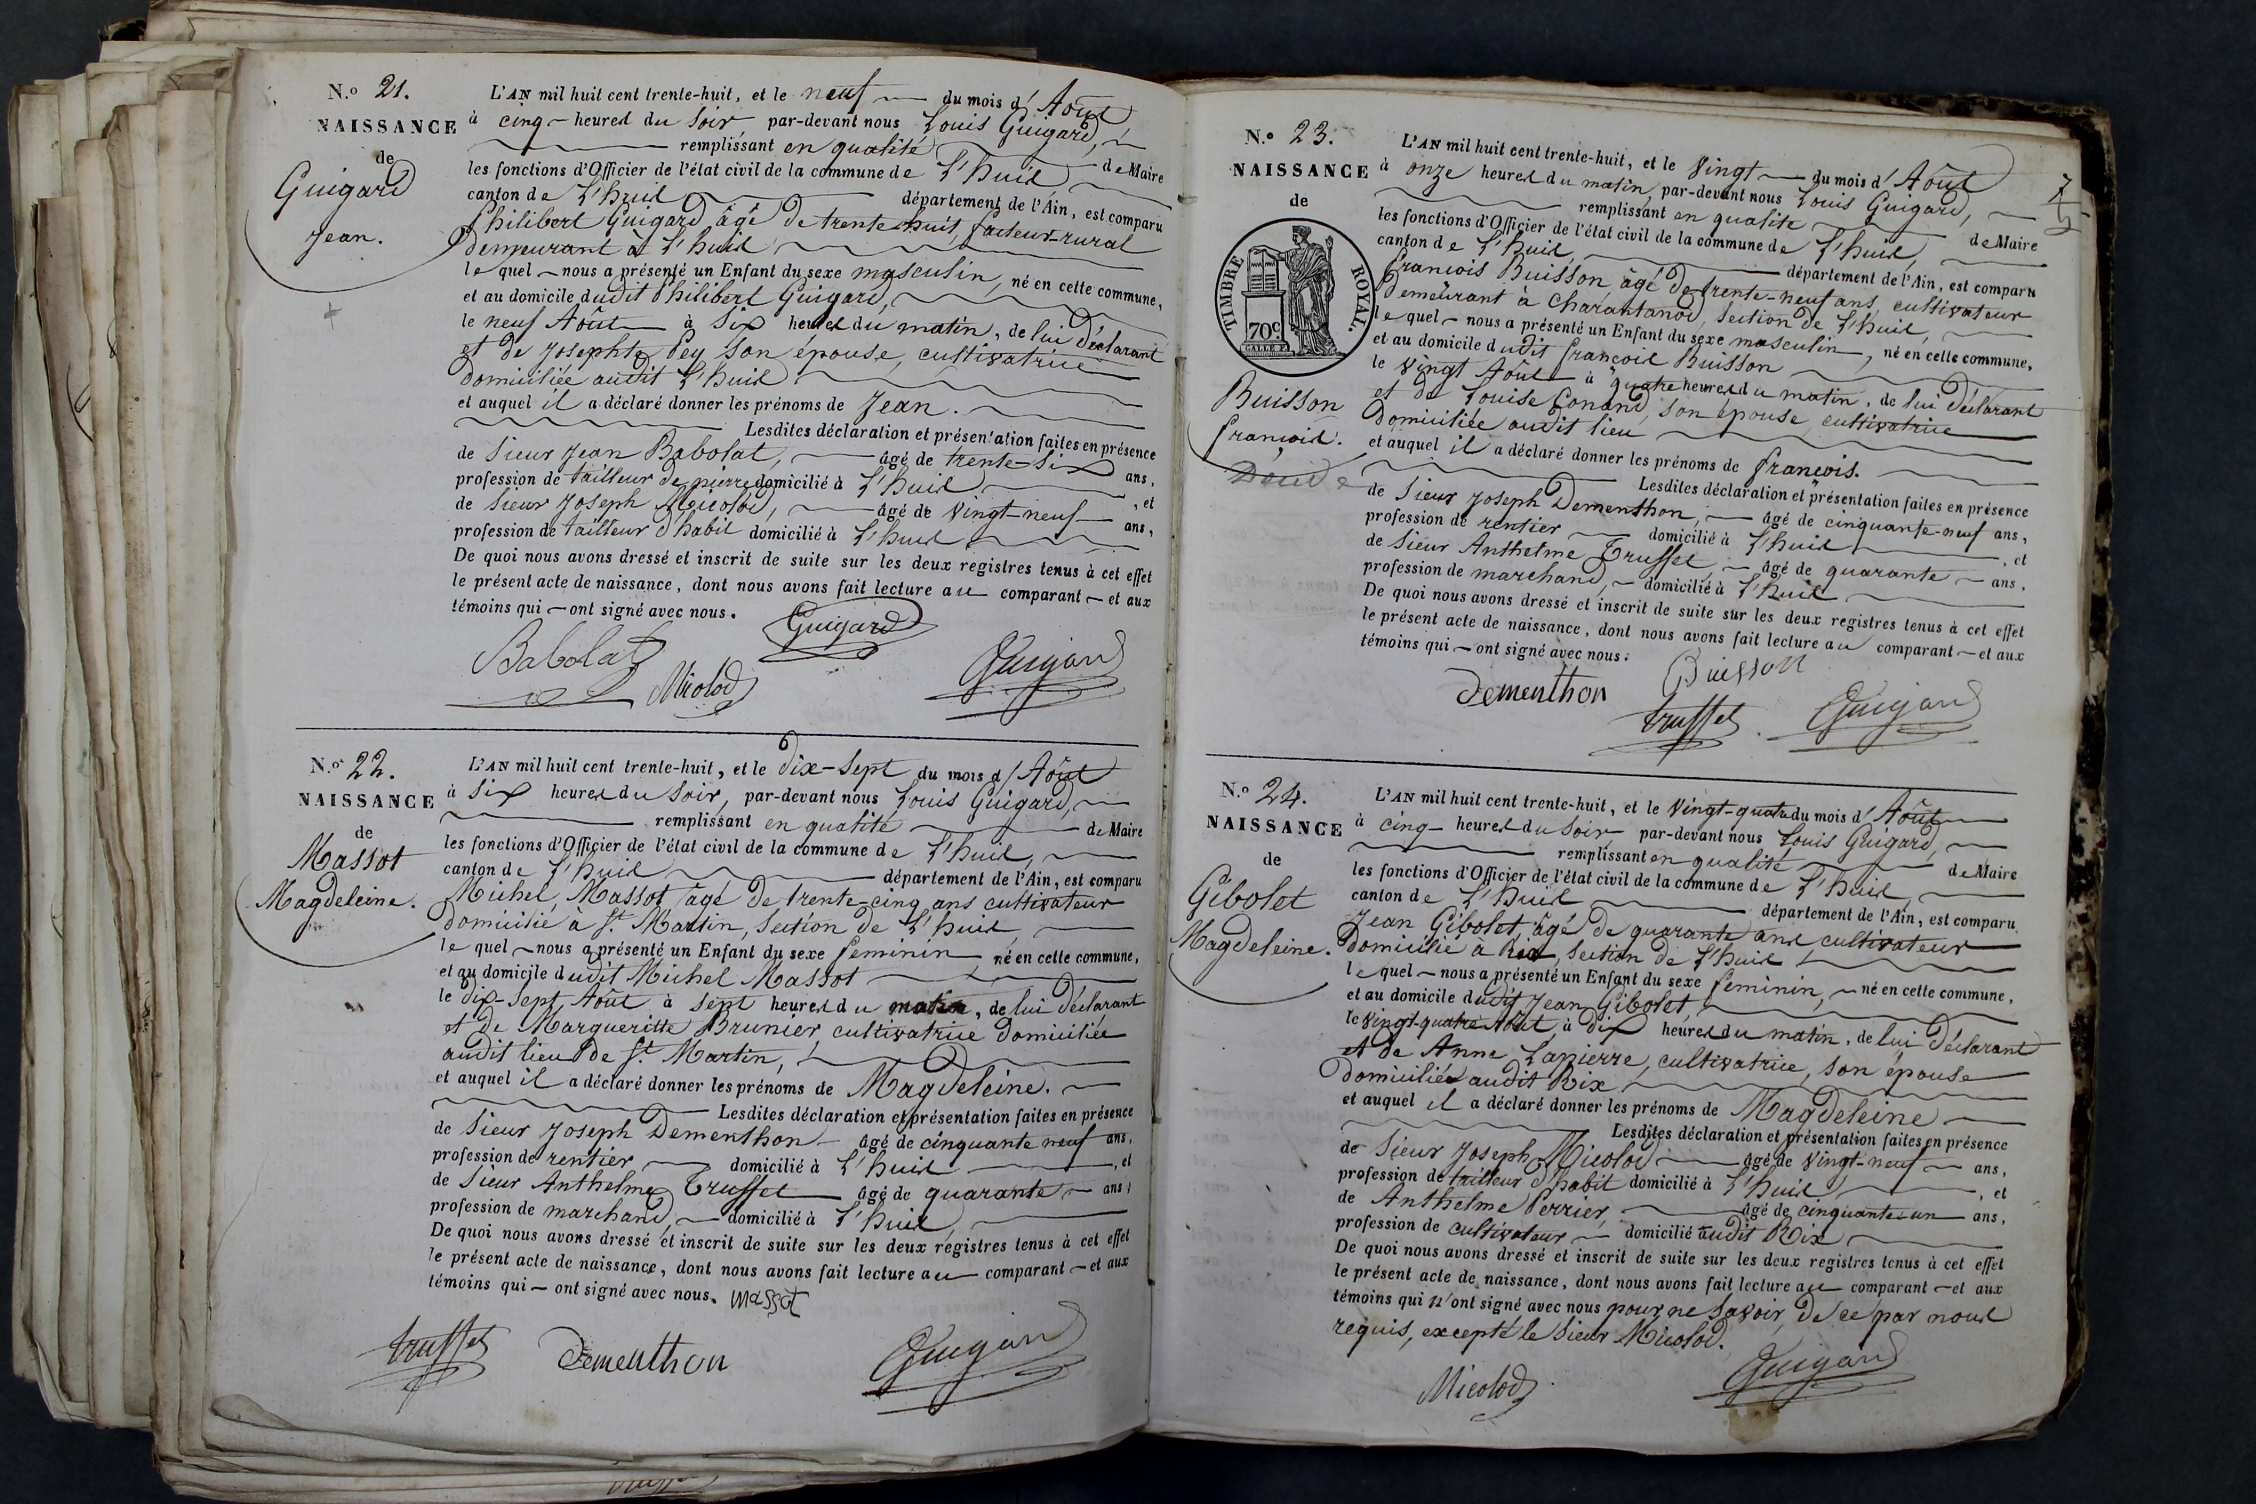 N.o 21.
NAISSANCE
de
Guigard
Jean.
L'AN mil huit cent trente-huit, et le neuf du mois d' Août
à cinq heures du soir, par-devant nous Louis Guigard,
remplissant en qualité de Maire
les fonctions d'Officier de l'état civil de la commune de L'huis
canton de L'huis département de l'Ain, est comparu
Philibert Guigard âgé de trente-huit, facteur-rural
demeurant à L'huis
le quel nous a présenté un Enfant du sexe masculin, né en cette commune,
et au domicile dudit Philibert Guigard,
le neuf Août à six heures du matin, de lui déclarant
et de Josephte Pey son épouse, cultivatrice
domiciliée audit L'huis
et auquel il a déclaré donner les prénoms de Jean.
Lesdites déclaration et présentation faites en présence
de Sieur Jean Babolat, âgé de trente-six ans,
profession de tailleur de pierre domicilié à L'huis, et
de Sieur Joseph Micolod, âgé de vingt-neuf ans,
profession de tailleur d'habit domicilié à L'huis
De quoi nous avons dressé et inscrit de suite sur les deux registres tenus à cet effet
le présent acte de naissance, dont nous avons fait lecture au comparant et aux
témoins qui ont signé avec nous.
Guigard
Babolat
Micolod
Guigard
N.o 22.
NAISSANCE
de
Massot
Magdeleine.
L'AN mil huit cent trente-huit, et le dix-sept du mois d' Août
à six heures du soir, par-devant nous Louis Guigard,
remplissant en qualité de Maire
les fonctions d'Officier de l'état civil de la commune de L'huis,
canton de L'huis département de l'Ain, est comparu
Michel Massot âgé de trente-cinq ans cultivateur
domicilié à St. Martin, section de L'huis
le quel nous a présenté un Enfant du sexe feminin, né en cette commune,
et au domicile dudit Michel Massot
le dix-sept Août à sept heures du matin, de lui déclarant
et de Margueritte Brunier, cultivatrice domiciliée
audit lieu de St. Martin,
et auquel il a déclaré donner les prénoms de Magdeleine.
Lesdites déclaration et présentation faites en présence
de Sieur Joseph Dementhon âgé de cinquante neuf ans,
profession de rentier domicilié à L'huis, et
de Sieur Anthelme Truffet âgé de quarante ans,
profession de marchand, domicilié à L'huis,
De quoi nous avons dressé et inscrit de suite sur les deux registres tenus à cet effet
le présent acte de naissance, dont nous avons fait lecture au comparant et aux
témoins qui ont signé avec nous. Massot
truffet
Dementhon
Guigard
N.o 23.
NAISSANCE
de
TIMBRE ROYAL.
70c
Buisson
françois.
L'AN mil huit cent trente-huit, et le vingt du mois d' Août
à onze heures du matin, par-devant nous Louis Guigard,
remplissant en qualité de Maire
les fonctions d'Officier de l'état civil de la commune de L'huis,
canton de L'huis, département de l'Ain, est comparu
françois Buisson âgé de trente-neuf ans, cultivateur
demeurant à Charantanod, section de L'huis,
le quel nous a présenté un Enfant du sexe masculin, né en cette commune,
et au domicile dudit françois Buisson
le vingt Août à quatre heures du matin, de lui déclarant
et de Louise Conand, son épouse, cultivatrice
domiciliée audit lieu
et auquel il a déclaré donner les prénoms de françois.
Lesdites déclaration et présentation faites en présence
de Sieur Joseph Dementhon, âgé de cinquante-neuf ans,
profession de rentier domicilié à L'huis, et
de Sieur Anthelme Truffet, âgé de quarante ans,
profession de marchand, domicilié à L'huis
De quoi nous avons dressé et inscrit de suite sur les deux registres tenus à cet effet
le présent acte de naissance, dont nous avons fait lecture au comparant et aux
témoins qui ont signé avec nous.
Buisson
Dementhon
truffet
Guigard
N.o 24.
NAISSANCE
de
Gibolet
Magdeleine.
L'AN mil huit cent trente-huit, et le vingt-quatre du mois d' Août
à cinq heures du soir par-devant nous Louis Guigard,
remplissant en qualité de Maire
les fonctions d'Officier de l'état civil de la commune de L'huis,
canton de L'huis département de l'Ain, est comparu
Jean Gibolet, âgé de quarante ans cultivateur
domicilié à Rix, section de L'huis
le quel nous a présenté un Enfant du sexe féminin, né en cette commune,
et au domicile dudit Jean Gibolet,
le vingt-quatre Août, à dix heures du matin, de lui déclarant
et de Anne Lapierre, cultivatrice, son épouse
domiciliée audit Rix
et auquel il a déclaré donner les prénoms de Magdeleine
Lesdites déclaration et présentation faites en présence
de Sieur Joseph Micolod âgé de vingt-neuf ans,
profession de tailleur d'habit domicilié à L'huis, et
de Anthelme Perrier, âgé de cinquante-un ans,
profession de cultivateur domicilié audit Rix
De quoi nous avons dressé et inscrit de suite sur les deux registres tenus à cet effet
le présent acte de naissance, dont nous avons fait lecture au comparant et aux
témoins qui n'ont signé avec nous pour ne savoir, de ce par nous
requis, excepté le Sieur Micolod.
Micolod
Guigard